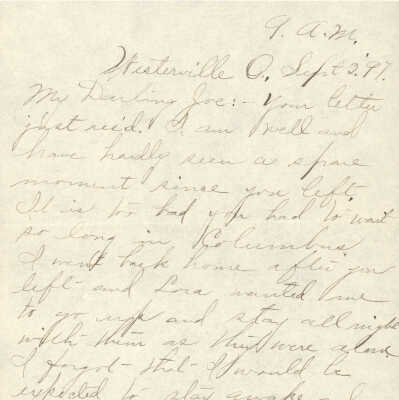 9. A.M.
Westerville O., Sept 2. '97.
My Darling Joe:- Your letter
just rec'd. I am well and
have hardly seen a spare
moment since you left.
It is too bad you had to wait
so long in Columbus
I went back home after you
left and Lora wanted me
to go up and stay all night
with them as they were alone
I forgot that I would be
expected to stay awake